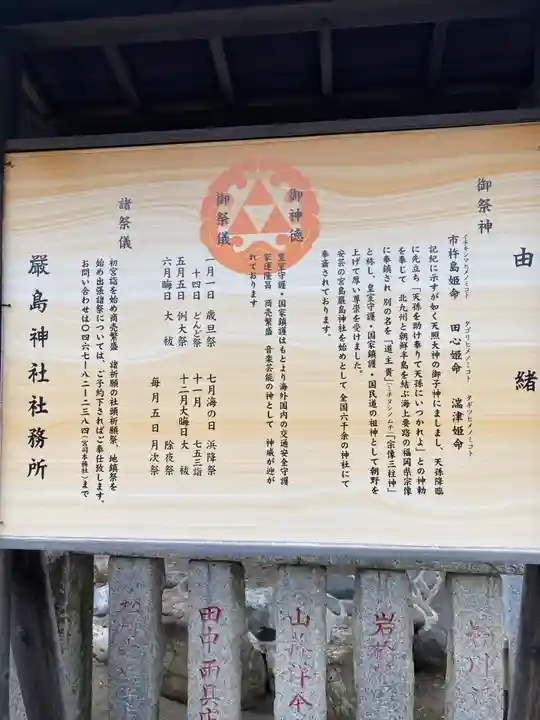 由緒
御祭神
イチキシマヒメノミコト
市杵島姫命
タゴリヒメノミコト
田心姫命
タギツヒメノミコト
湍津姫命
記紀に示すが如く天照大神の御子神にましまし、天孫降臨
に先立ち「天孫を助け奉りて天孫にいつかれよ」との神勅
を奉じて 北九州と朝鮮半島を結ぶ海上要路の福岡県宗像
に奉鎮され 別の名を「道主貴」(ミチヌシノムチ)「宗像三柱神」
と称し、皇室守護・国家鎮護・国民道の祖神として朝野を
上げて厚い尊崇を受けました。
安芸の宮島厳島神社を始めとして 全国六千余の神社にて
奉斎されております。
御神徳
皇室守護・国家鎮護はもとより海外国内の交通安全守護
家運隆昌 商売繁盛 音楽芸能の神として 神威が迎が
れております
御祭儀
一月一日 歳旦祭
十四日 どんど祭
五月五日 例大祭
六月晦日 大祓
七月海の日 浜降祭
十一月 七五三詣
十二月大晦日 大祓
除夜祭
毎月五日 月次祭
諸祭儀
初宮詣を始め商売繁盛 諸祈願の社頭祈願祭、地鎮祭を
始め出張諸祭については、ご予約下さればご奉仕致します。
お問い合わせは〇四六七ー八二ー二三八四(宮司本務社)まで
厳島神社社務所
田中雨具店
山
岩
川